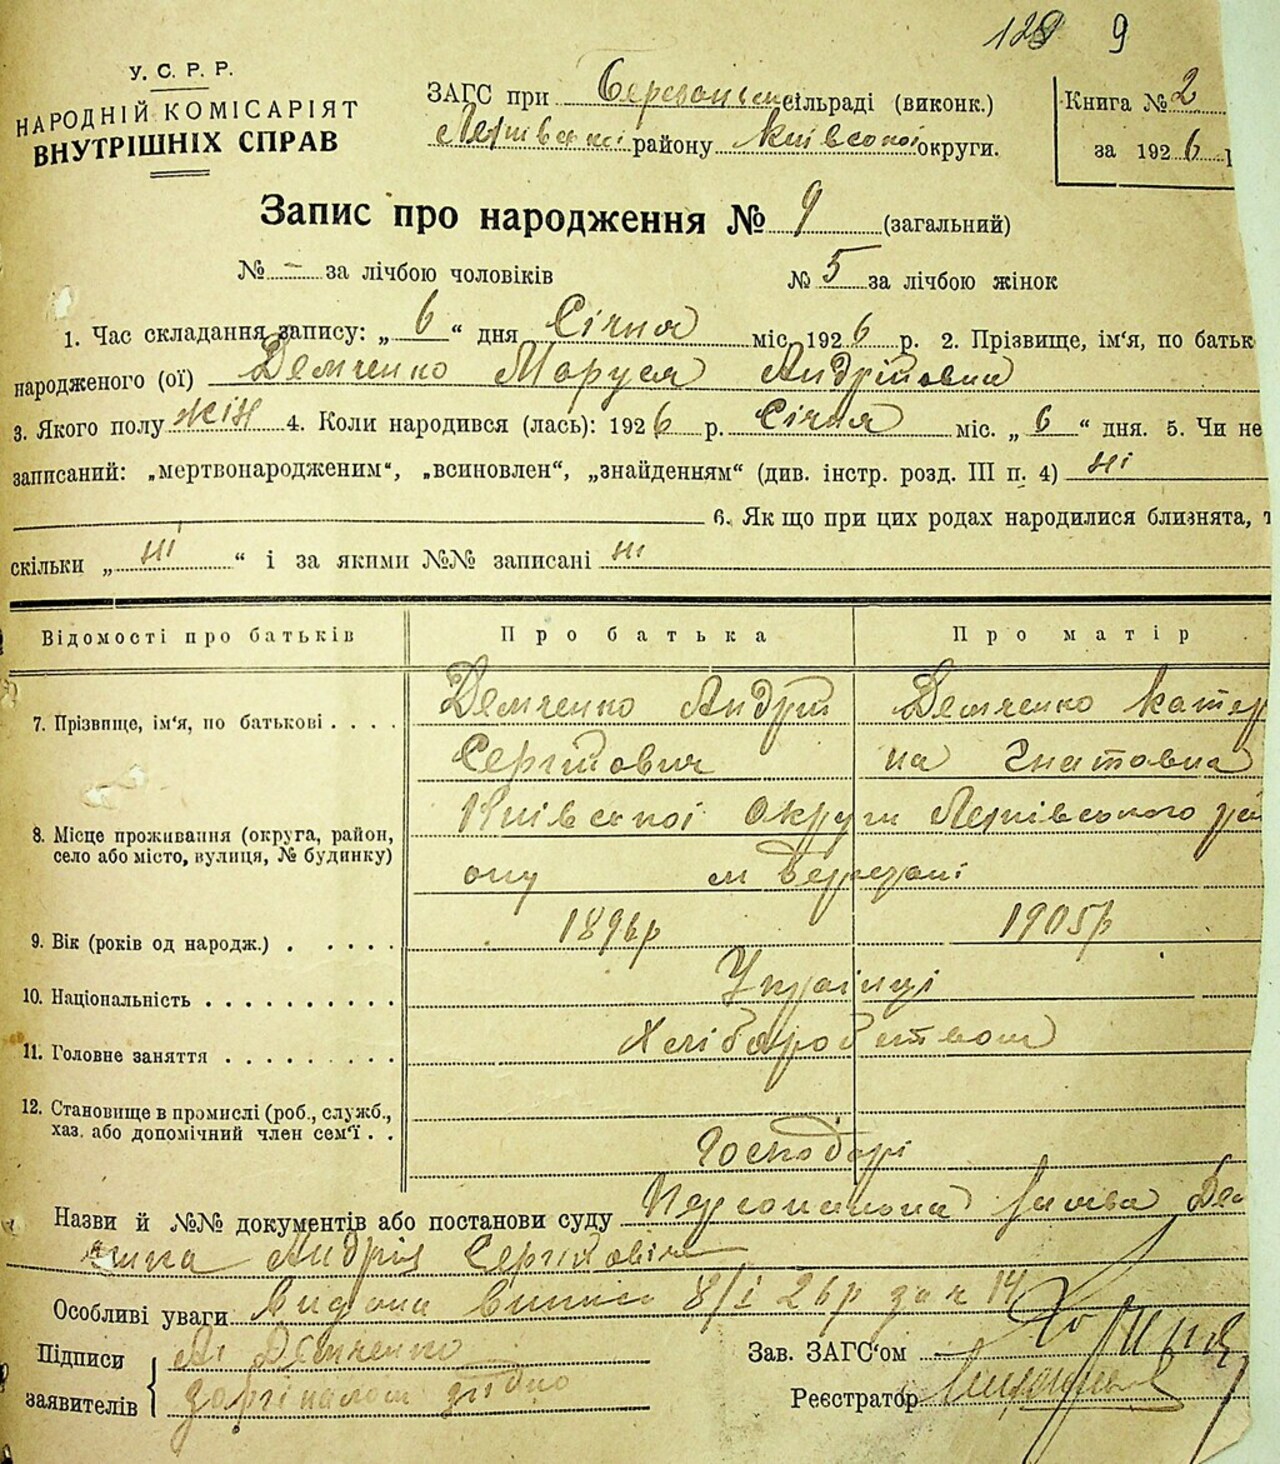 128 9
У. С. Р. Р.
НАРОДНІЙ КОМІСАРІЯТ
ВНУТРІШНІХ СПРАВ
ЗАГС при Березанській сільраді (виконк.)
району Київської округи.
Книга № 2
за 1926 р
Запис про народження № 9 (загальний)
№ - за лічбою чоловіків
№ 5 за лічбою жінок
1. Час складання запису: „ 6 “ дня Січня міс. 1926 р. 2. Прізвище, ім'я, по батьк
народженого (ої) Демченко Маруся Андрійовна
3. Якого полу жін 4. Коли народився (лась): 1926 р. Січня міс. „ 6 “ дня. 5. Чи не
записаний: „мертвонародженим“, „всиновлен“, „знайденням“ (див. інстр. розд. III п. 4) ні
6. Як що при цих родах народилися близнята, т
скільки „ ні “ і за якими №№ записані ні
Відомості про батьків
Про батька
Про матір
7. Прізвище, ім'я, по батькові . . . .
Демченко Андрій
Сергійович
Демченко Катер
на Гнатовна
8. Місце проживання (округа, район,
село або місто, вулиця, № будинку)
Київської округи району
м Березані
9. Вік (років од народж.) . . . . .
1896р
1905р
10. Національність . . . . . . . . . .
Українці
11. Головне заняття . . . . . . . . .
Хліборобством
12. Становище в промислі (роб., служб.,
хаз. або допомічний член сем'ї . .
Господарі
Назви й №№ документів або постанови суду заява Дем
Андрія Сергійовіча
Особливі уваги Видана 8/I 26р за № 14
Підписи
заявителів
Ан Демченко
з оргіналом згідно
Зав. ЗАГС'ом
Реєстратор